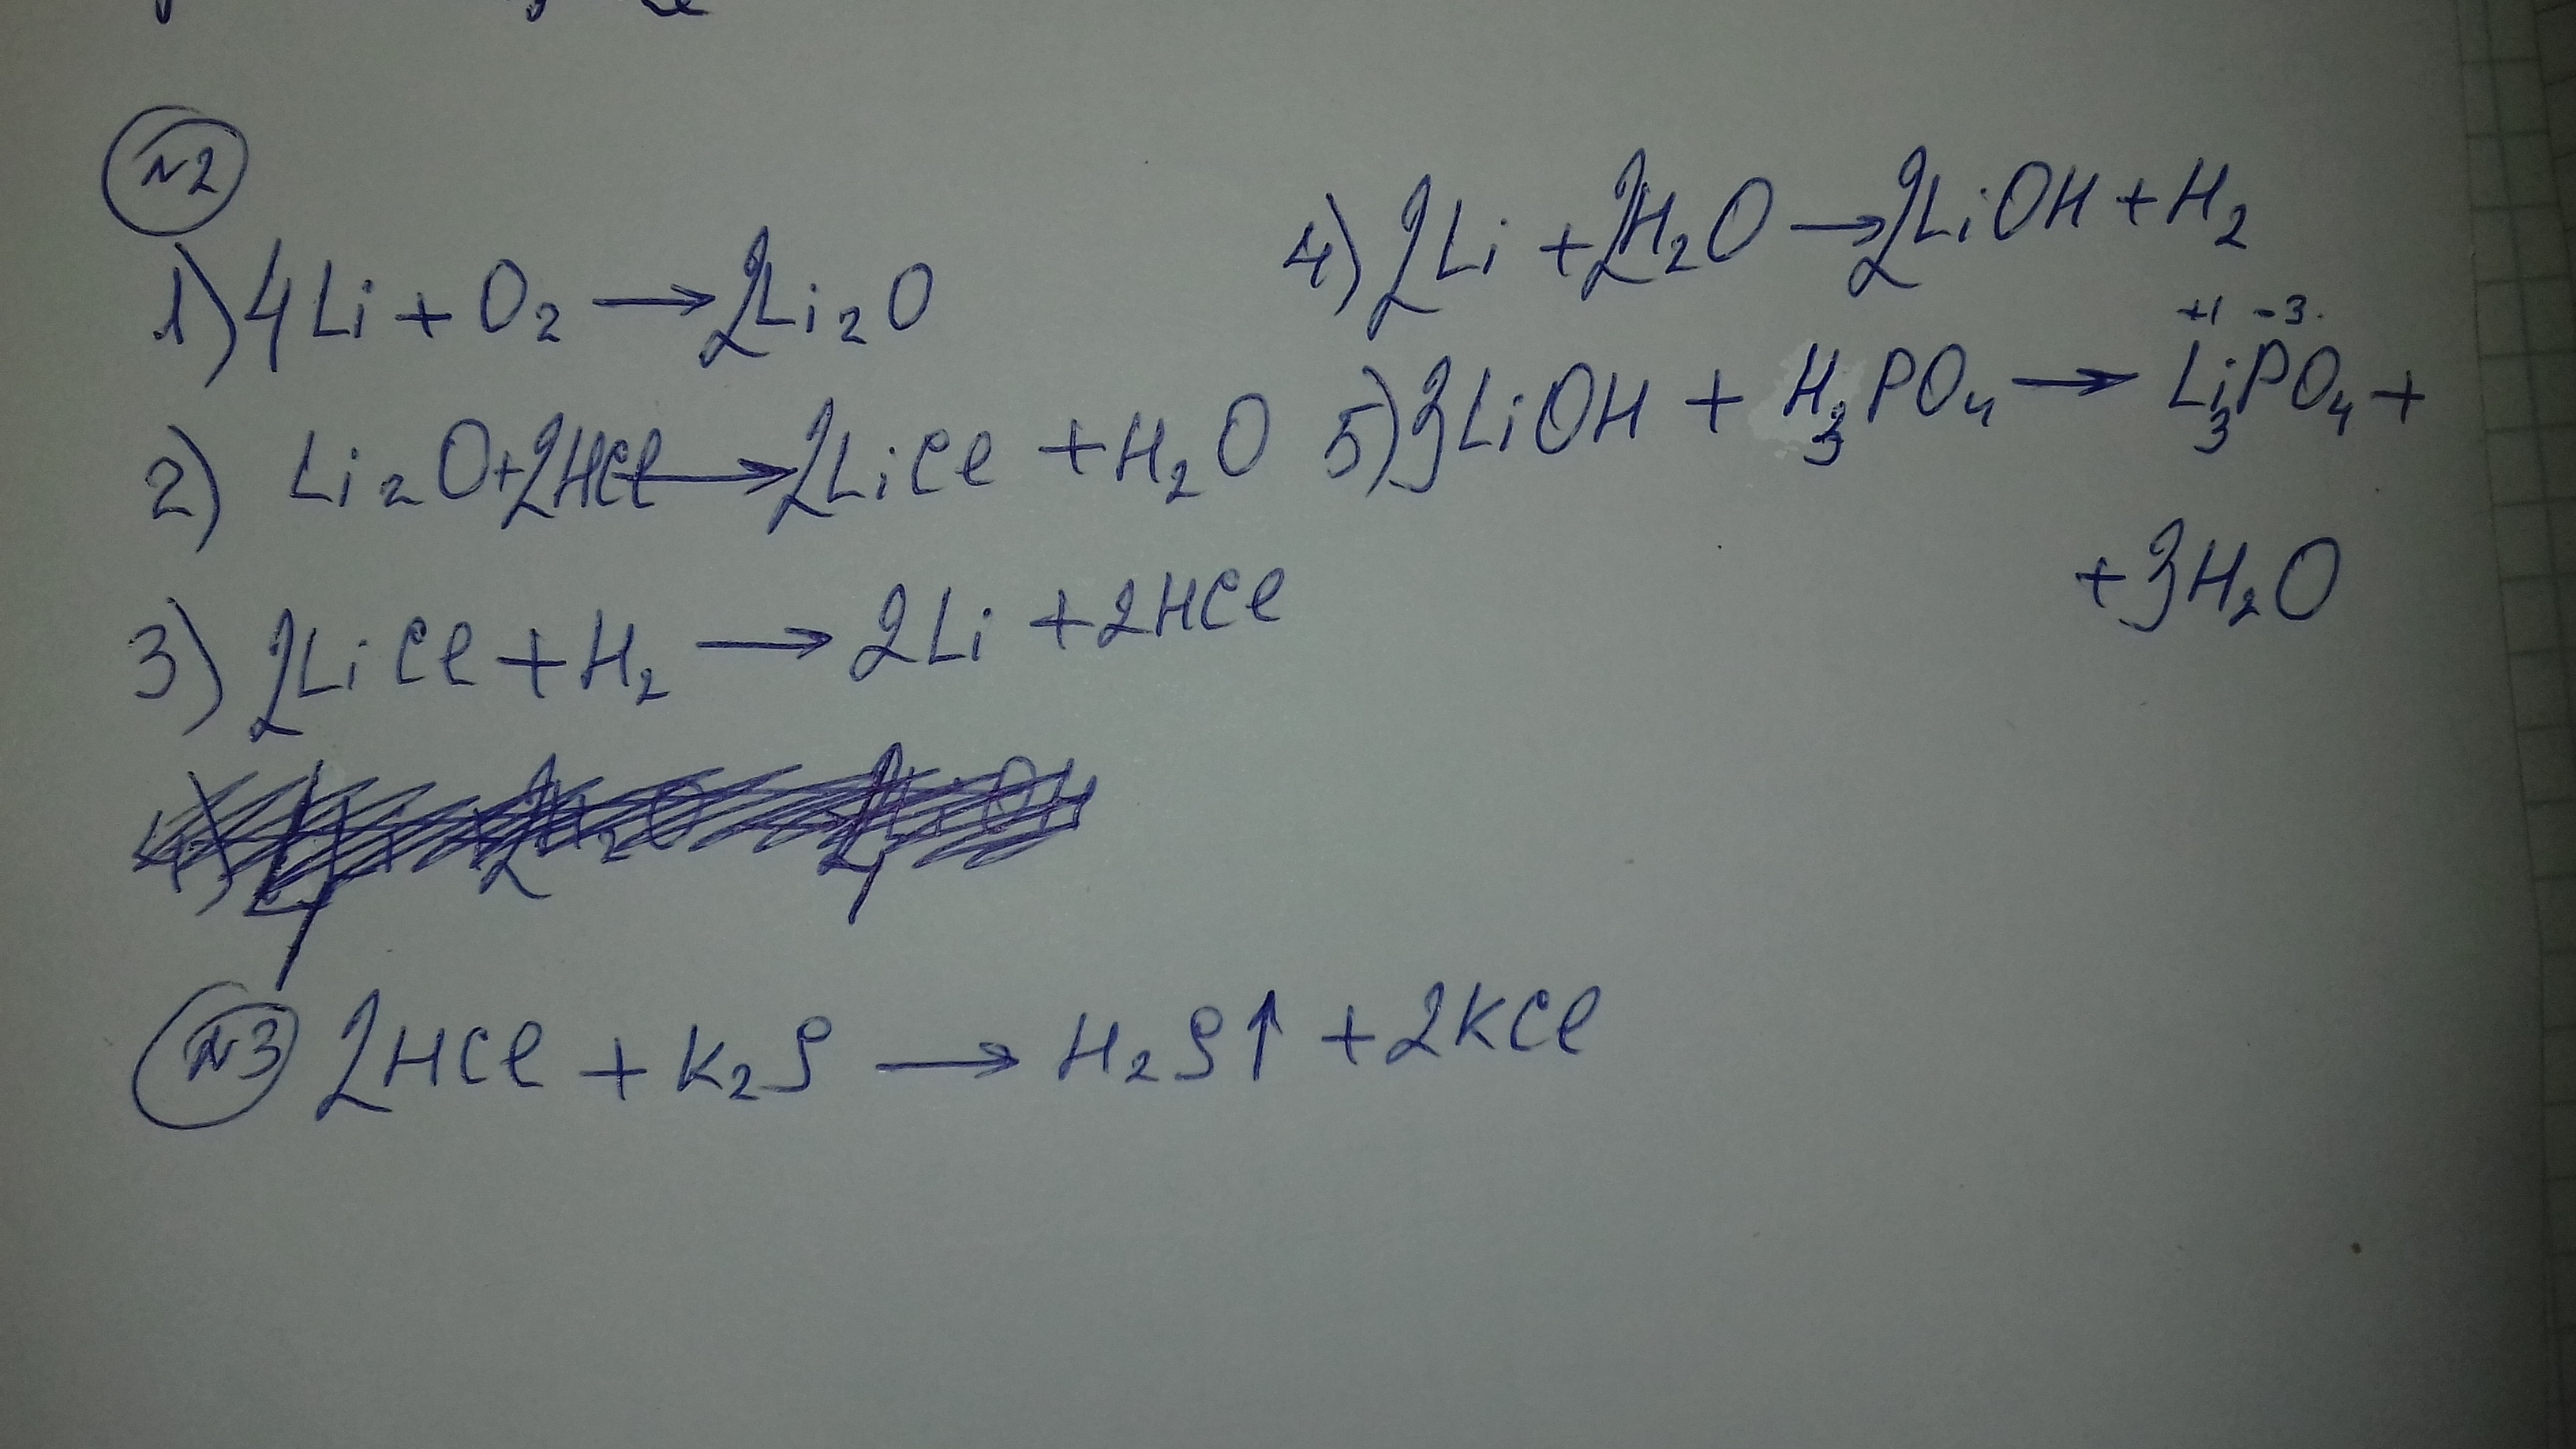 №2
1) 4Li + O₂ → 2Li₂O
2) Li₂O + 2HCl → 2LiCl + H₂O
3) 2LiCl + H₂ → 2Li + 2HCl
4) 2Li + 2H₂O → 2LiOH + H₂
+1 -3
5) 3LiOH + H₃PO₄ → Li₃PO₄ +
+ 3H₂O
№3 2HCl + K₂S → H₂S↑ + 2KCl